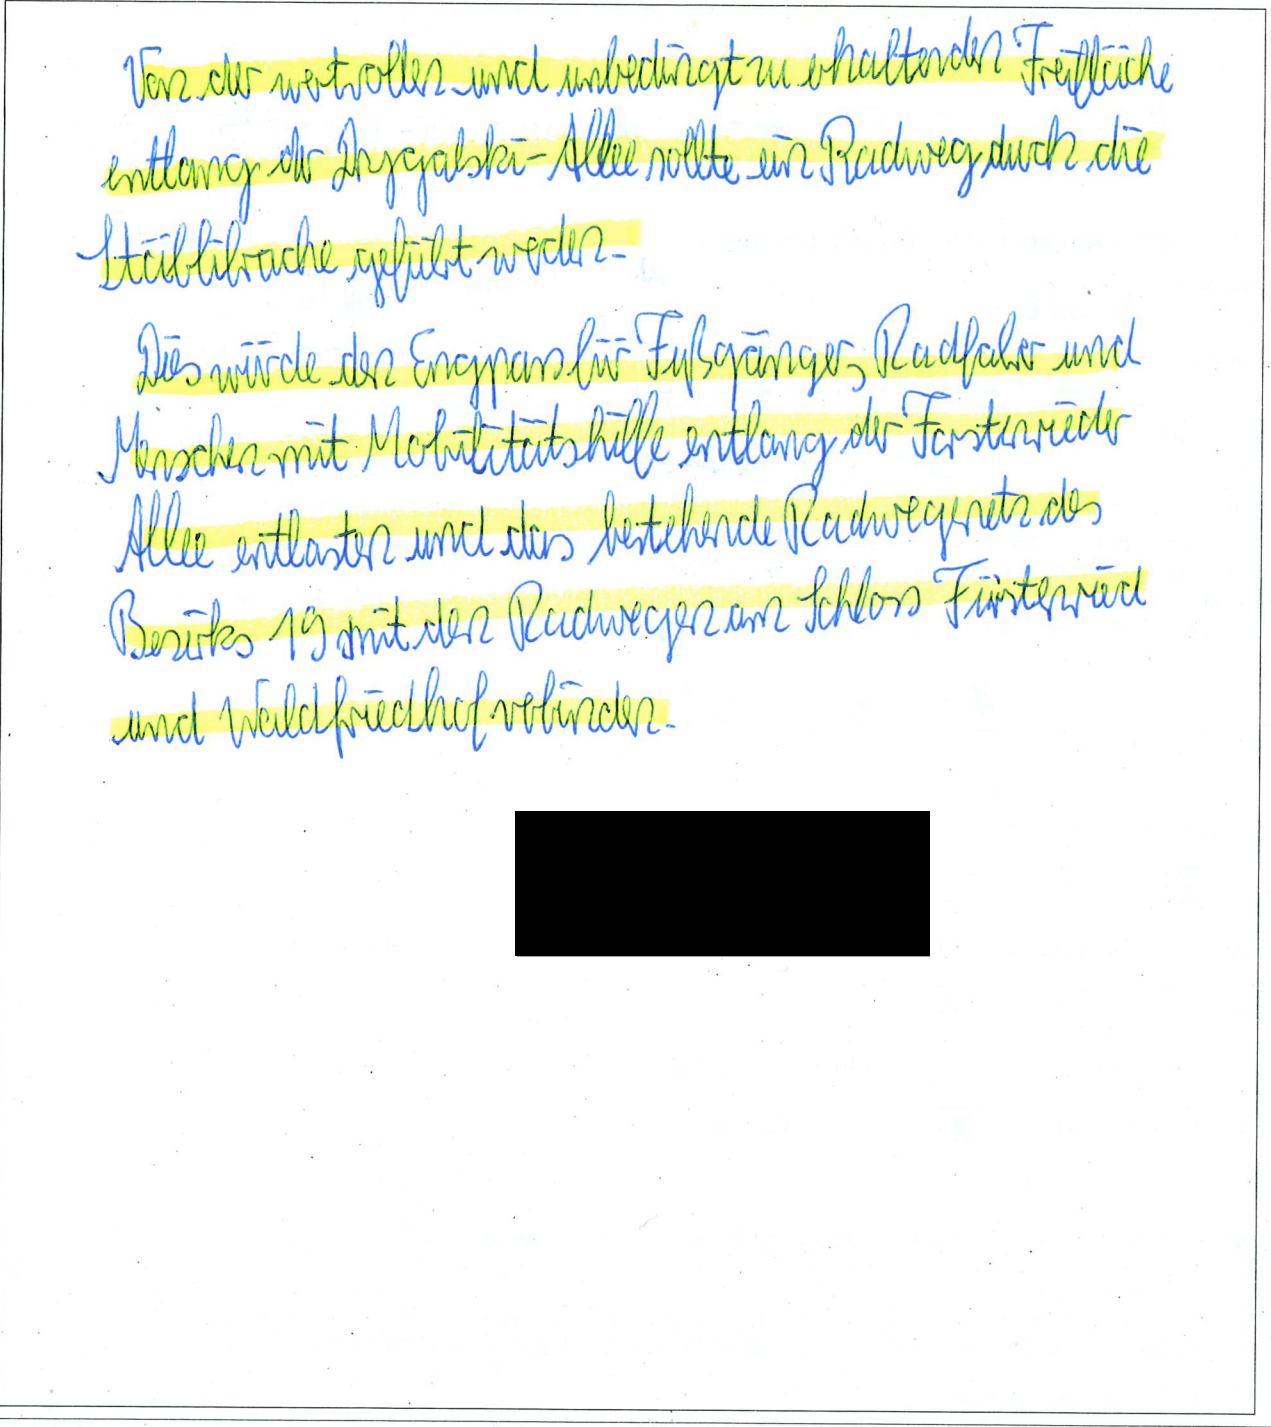 Von der wertvollen und unbedingt zu erhaltenden Freifläche
entlang der Drygalski-Allee sollte ein Radweg durch die
Stäblibrache geführt werden.
Dies würde den Engpass für Fußgänger, Radfahrer und
Menschen mit Mobilitätshilfe entlang der Forstenrieder
Allee entlasten und das bestehende Radwegenetz des
Bezirks 19 mit den Radwegen am Schloss Fürstenried
und Waldfriedhof verbinden.